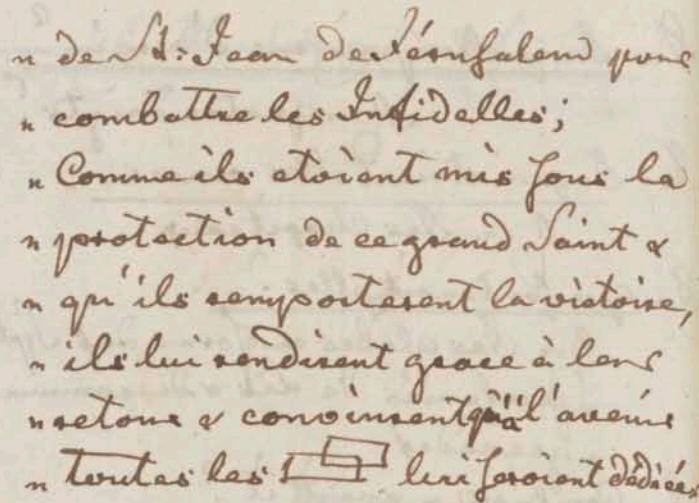 " de St: Jean de Jérusalem pour
" combattre les Infidelles;
" Comme ils etoient mis sous la
" protection de ce grand Saint &
" qu'ils remporterent la victoire,
" ils lui rendirent grace à leur
" retour & convinrent qu'à l'avenir
" toutes les lui seroient dédiées,